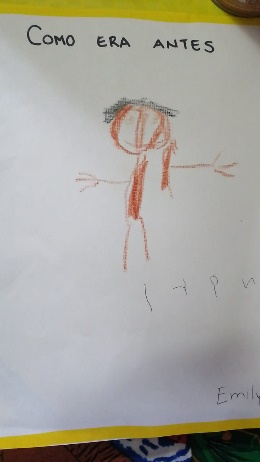 COMO ERA ANTES
Emily